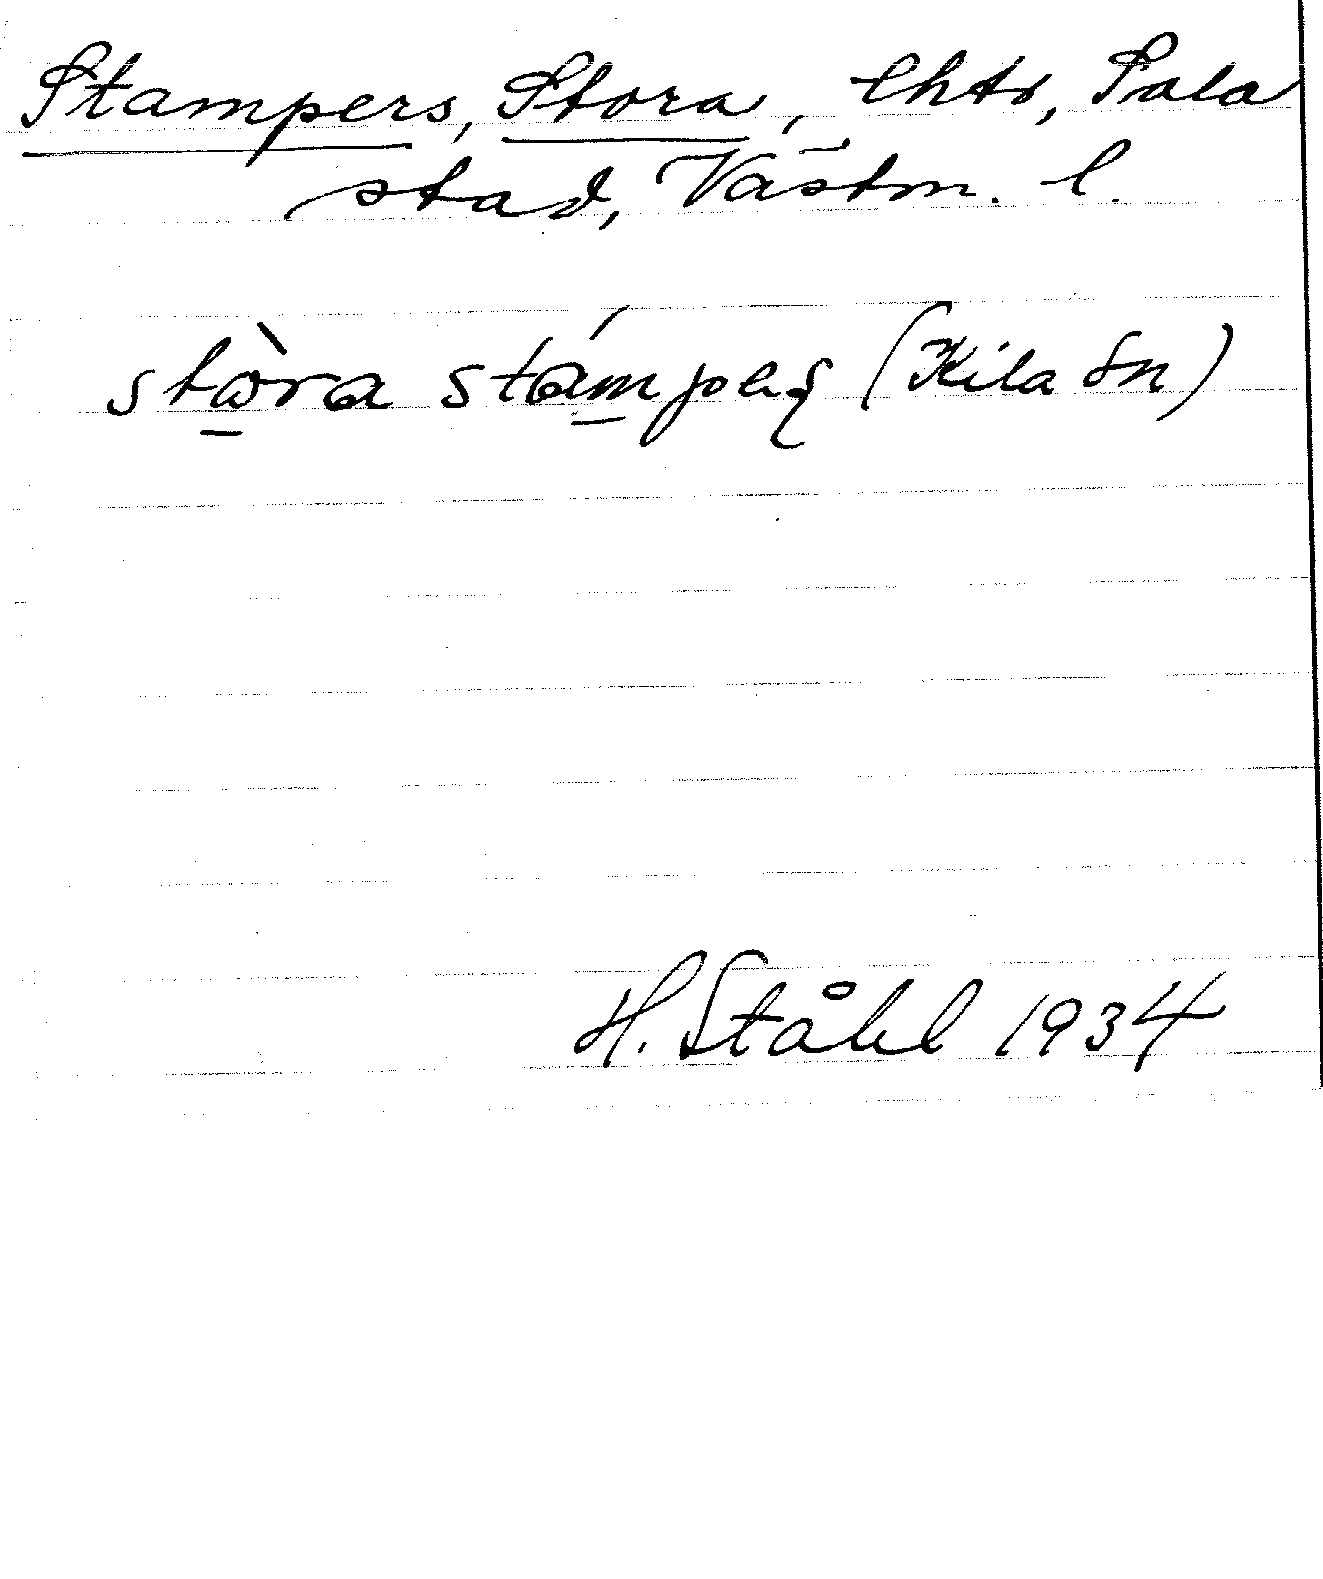 Stampers, Stora, lhts, Sala
stad, Västm. l.
stòra stámpeʂ (Kila sn)
H. Ståhl 1934